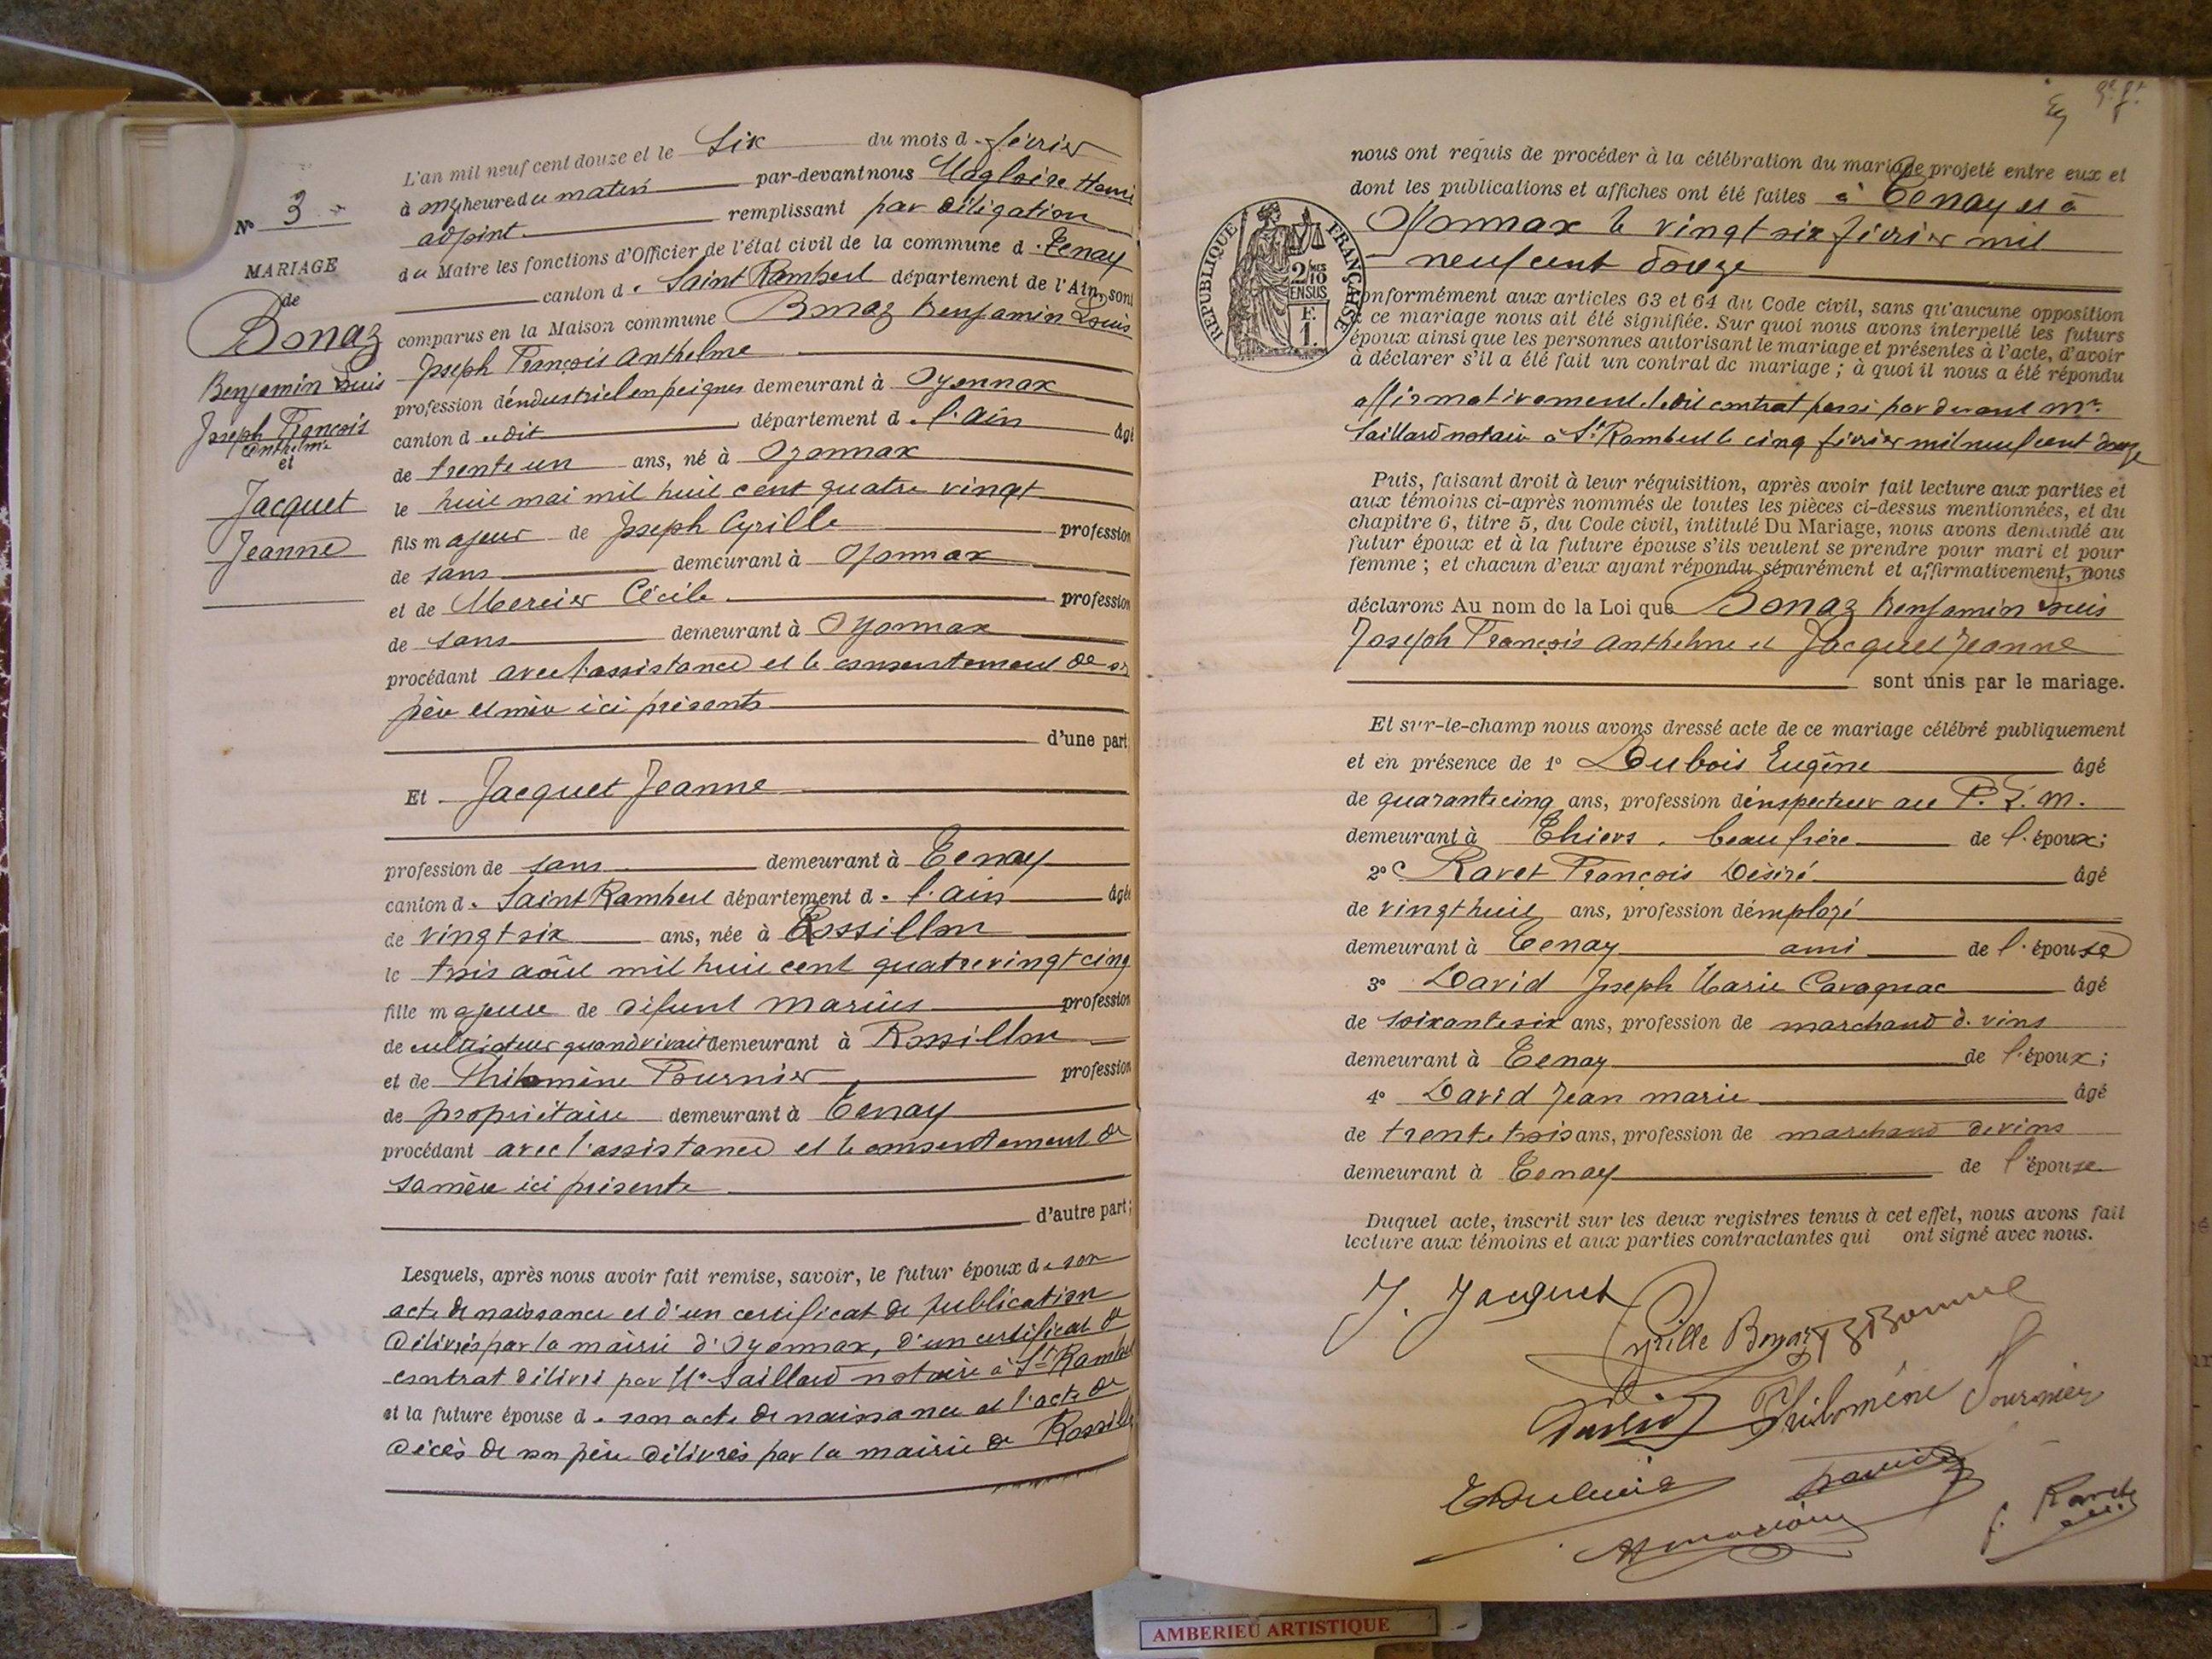 L'an mil neuf cent douze et le Six du mois d. février
à onze heure du matin par-devant nous Magloire Henri
adjoint remplissant par délégation
du Maire les fonctions d'Officier de l'état civil de la commune d. Tenay
canton d. Saint Rambert département de l'Ain, sont
comparus en la Maison commune Bonaz Benjamin Louis
Joseph François Anthelme
profession d'industriel en peignes demeurant à Oyonnax
canton d udit département d. l'ain âgé
de trente un ans, né à Oyonnax
le huit mai mil huit cent quatre vingt
fils majeur de Joseph Cyrille profession
de sans demeurant à Oyonnax
et de Mercier Cécile profession
de sans demeurant à Oyonnax
procédant avec l'assistance et le consentement de ses
père et mère ici présents
d'une part
Et Jacquet Jeanne
profession de sans demeurant à Tenay
canton d. Saint Rambert département d. l'ain âgée
de vingt six ans, née à Rossillon
le trois août mil huit cent quatre vingt cinq
fille majeure de défunt Marius profession
de cultivateur quand vivait demeurant à Rossillon
et de Philomène Fournier profession
de propriétaire demeurant à Tenay
procédant avec l'assistance et le consentement de
sa mère ici présente
d'autre part;
Lesquels, après nous avoir fait remise, savoir, le futur époux d. son
acte de naissance et d'un certificat de publication
délivrés par la mairie d'Oyonnax, d'un certificat de
contrat délivré par Me Saillard notaire à St Rambert
et la future épouse d. son acte de naissance et l'acte de
décès de son père délivrés par la mairie de Rossill
No 3
MARIAGE
de
Bonaz
Benjamin Louis
Joseph François
Anthelme
et
Jacquet
Jeanne
nous ont requis de procéder à la célébration du mariage projeté entre eux et
dont les publications et affiches ont été faites à Tenay et à
Oyonnax le vingt six février mil
neuf cent douze
RÉPUBLIQUE FRANÇAISE
2/10 EN SUS
F.
1.
conformément aux articles 63 et 64 du Code civil, sans qu'aucune opposition
à ce mariage nous ait été signifiée. Sur quoi nous avons interpellé les futurs
époux ainsi que les personnes autorisant le mariage et présentes à l'acte, d'avoir
à déclarer s'il a été fait un contrat de mariage ; à quoi il nous a été répondu
affirmativement. ledit contrat passé par devant Mr.
Saillard notaire à St Rambert le cinq février mil neuf cent douze
Puis, faisant droit à leur réquisition, après avoir fait lecture aux parties et
aux témoins ci-après nommés de toutes les pièces ci-dessus mentionnées, et du
chapitre 6, titre 5, du Code civil, intitulé Du Mariage, nous avons demandé au
futur époux et à la future épouse s'ils veulent se prendre pour mari et pour
femme ; et chacun d'eux ayant répondu séparément et affirmativement, nous
déclarons Au nom de la Loi que Bonaz Benjamin Louis
Joseph François Anthelme et Jacquet Jeanne
sont unis par le mariage.
Et sur-le-champ nous avons dressé acte de ce mariage célébré publiquement
et en présence de 1° Dubois Eugène âgé
de quarante cinq ans, profession d'inspecteur au P. L. M.
demeurant à Thiers, beau frère de l'époux;
2° Ravet François Désiré âgé
de vingt huit ans, profession d'employé
demeurant à Tenay ami de l'épouse
3° David Joseph Marie Cavagnac âgé
de soixante six ans, profession de marchand d. vins
demeurant à Tenay de l'époux;
4° David Jean Marie âgé
de trente trois ans, profession de marchand de vins
demeurant à Tenay de l'épouse
Duquel acte, inscrit sur les deux registres tenus à cet effet, nous avons fait
lecture aux témoins et aux parties contractantes qui ont signé avec nous.
J. Jacquet
Cyrille Bonaz
David Philomène Fournier
E Dubois David
f. Ravet
AMBERIEU ARTISTIQUE